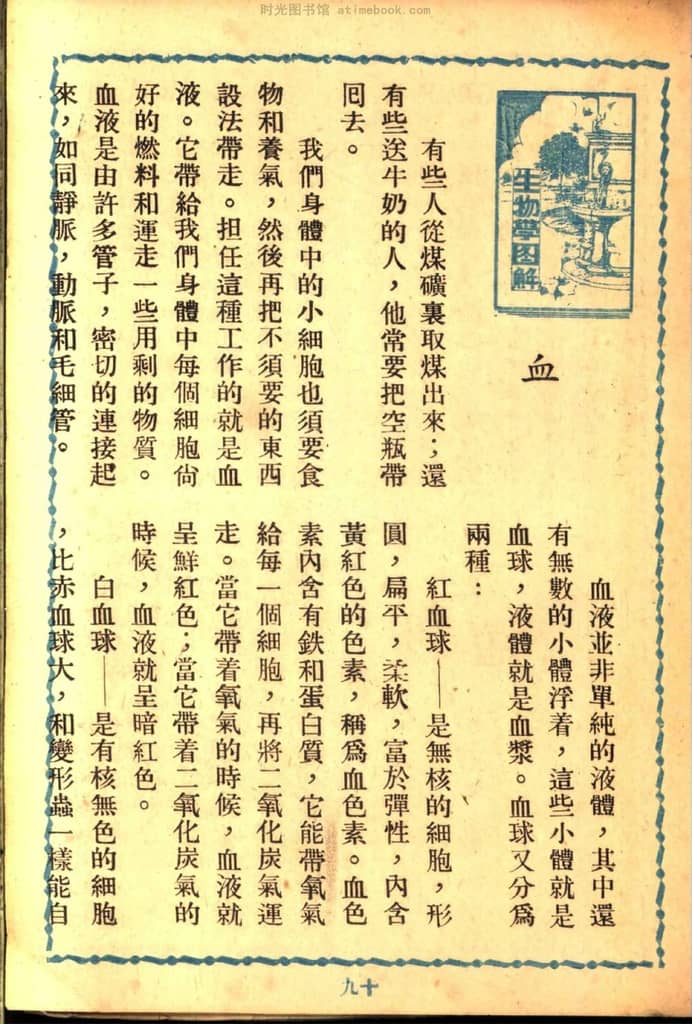 时光图书馆 atimebook.com
生物學图解
血
有些人從煤礦裏取煤出來；還
有些送牛奶的人，他常要把空瓶帶
囘去。
我們身體中的小細胞也須要食
物和養氣，然後再把不須要的東西
設法帶走。担任這種工作的就是血
液。它帶給我們身體中每個細胞尙
好的燃料和運走一些用剩的物質。
血液是由許多管子，密切的連接起
來，如同靜脈，動脈和毛細管。
血液並非單純的液體，其中還
有無數的小體浮着，這些小體就是
血球，液體就是血漿。血球又分爲
兩種：
紅血球——是無核的細胞，形
圓，扁平，柔軟，富於彈性，內含
黃紅色的色素，稱爲血色素。血色
素內含有鉄和蛋白質，它能帶氧氣
給每一個細胞，再將二氧化炭氣運
走。當它帶着氧氣的時候，血液就
呈鮮紅色；當它帶着二氧化炭氣的
時候，血液就呈暗紅色。
白血球——是有核無色的細胞
，比赤血球大，和變形蟲一樣能自
十九